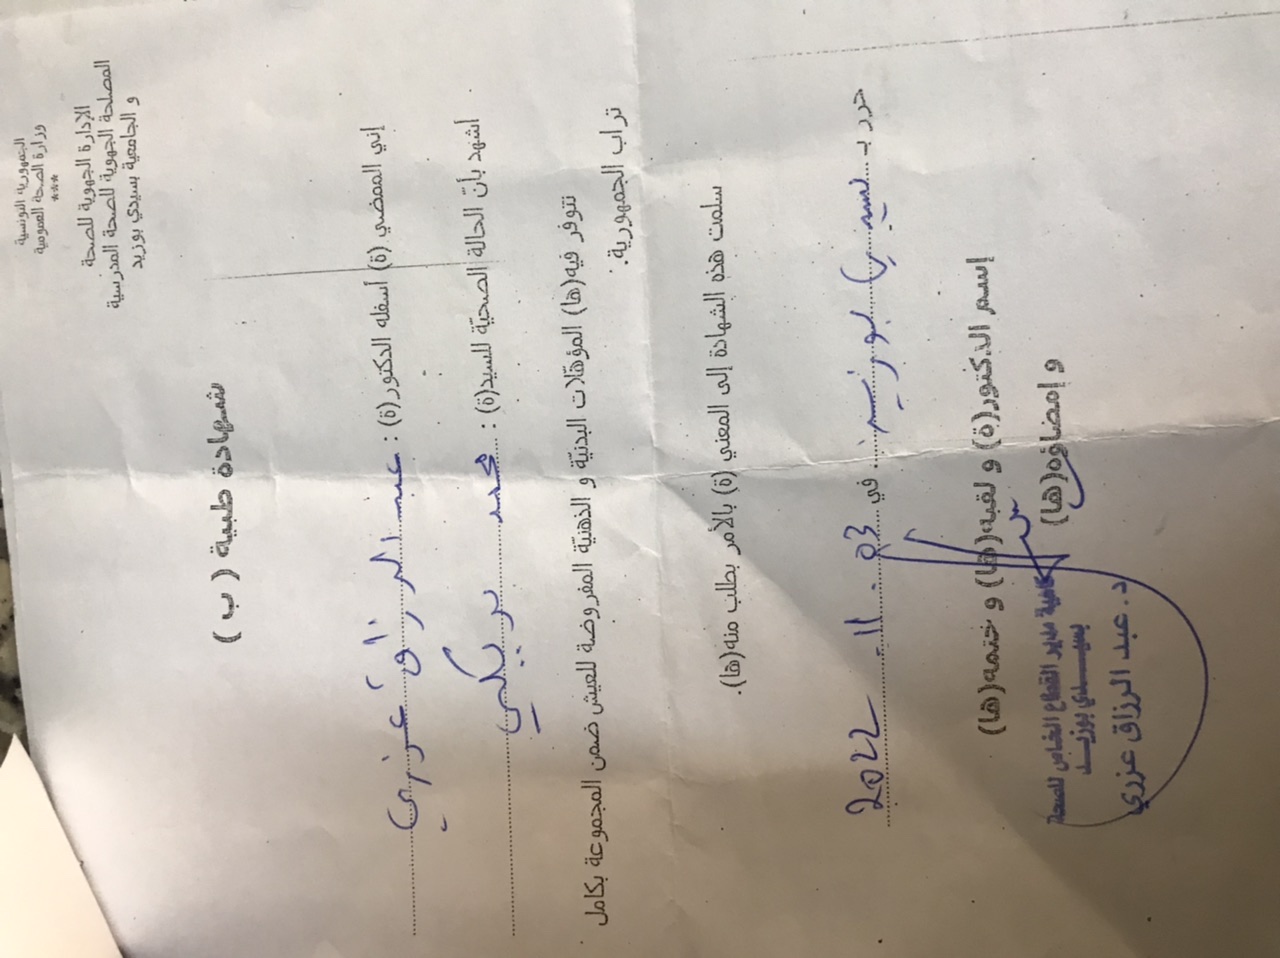 الجمهورية التونسية
وزارة الصحة العمومية
***
الإدارة الجهوية للصحة
المصلحة الجهوية للصحة المدرسية
و الجامعية بسيدي بوزيد
شهادة طبية ( ب )
إني الممضي (ة) أسفله الدكتور(ة) : عبد الرزاق عزري
أشهد بأن الحالة الصحيّة للسيد(ة) : محمد بريكي
تتوفر فيه(ها) المؤهّلات البدنيّة و الذهنيّة المفروضة للعيش ضمن المجموعة بكامل
تراب الجمهورية.
سلمت هذه الشهادة إلى المعني (ة) بالأمر بطلب منه(ها).
حرر بـ سيدي بوزيد في 03 .11. 2022
إسم الدكتور(ة) و لقبه(ها) و ختمه(ها)
و إمضاؤه(ها)
مدير القطاع الخاص للصحة
بسيدي بوزيد
د. عبد الرزاق عزري